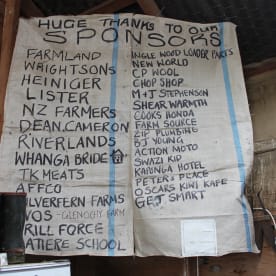 HUGE THANKS TO OUR
SPONSORS
FARMLAND
WRIGHTSONS
HEINIGER
LISTER
NZ FARMERS
DEAN.CAMERON
RIVERLANDS
WHANGA BRIDE
TK MEATS
AFFCO
SILVERFERN FARMS
VOS - GLENOCHY FARM
DRILL FORCE
MATIERE SCHOOL
INGLE WOOD LOADER PARTS
NEW WORLD
CP WOOL
CHOP SHOP
M+J STEPHENSON
SHEAR WARMTH
COOKS HONDA
FARM SOURCE
ZIP PLUMBING
BJ YOUNG
ACTION MOTO
SWAZI KID
HOTEL
PETERS PLACE
OSCARS KIWI KAFE
GET SMART